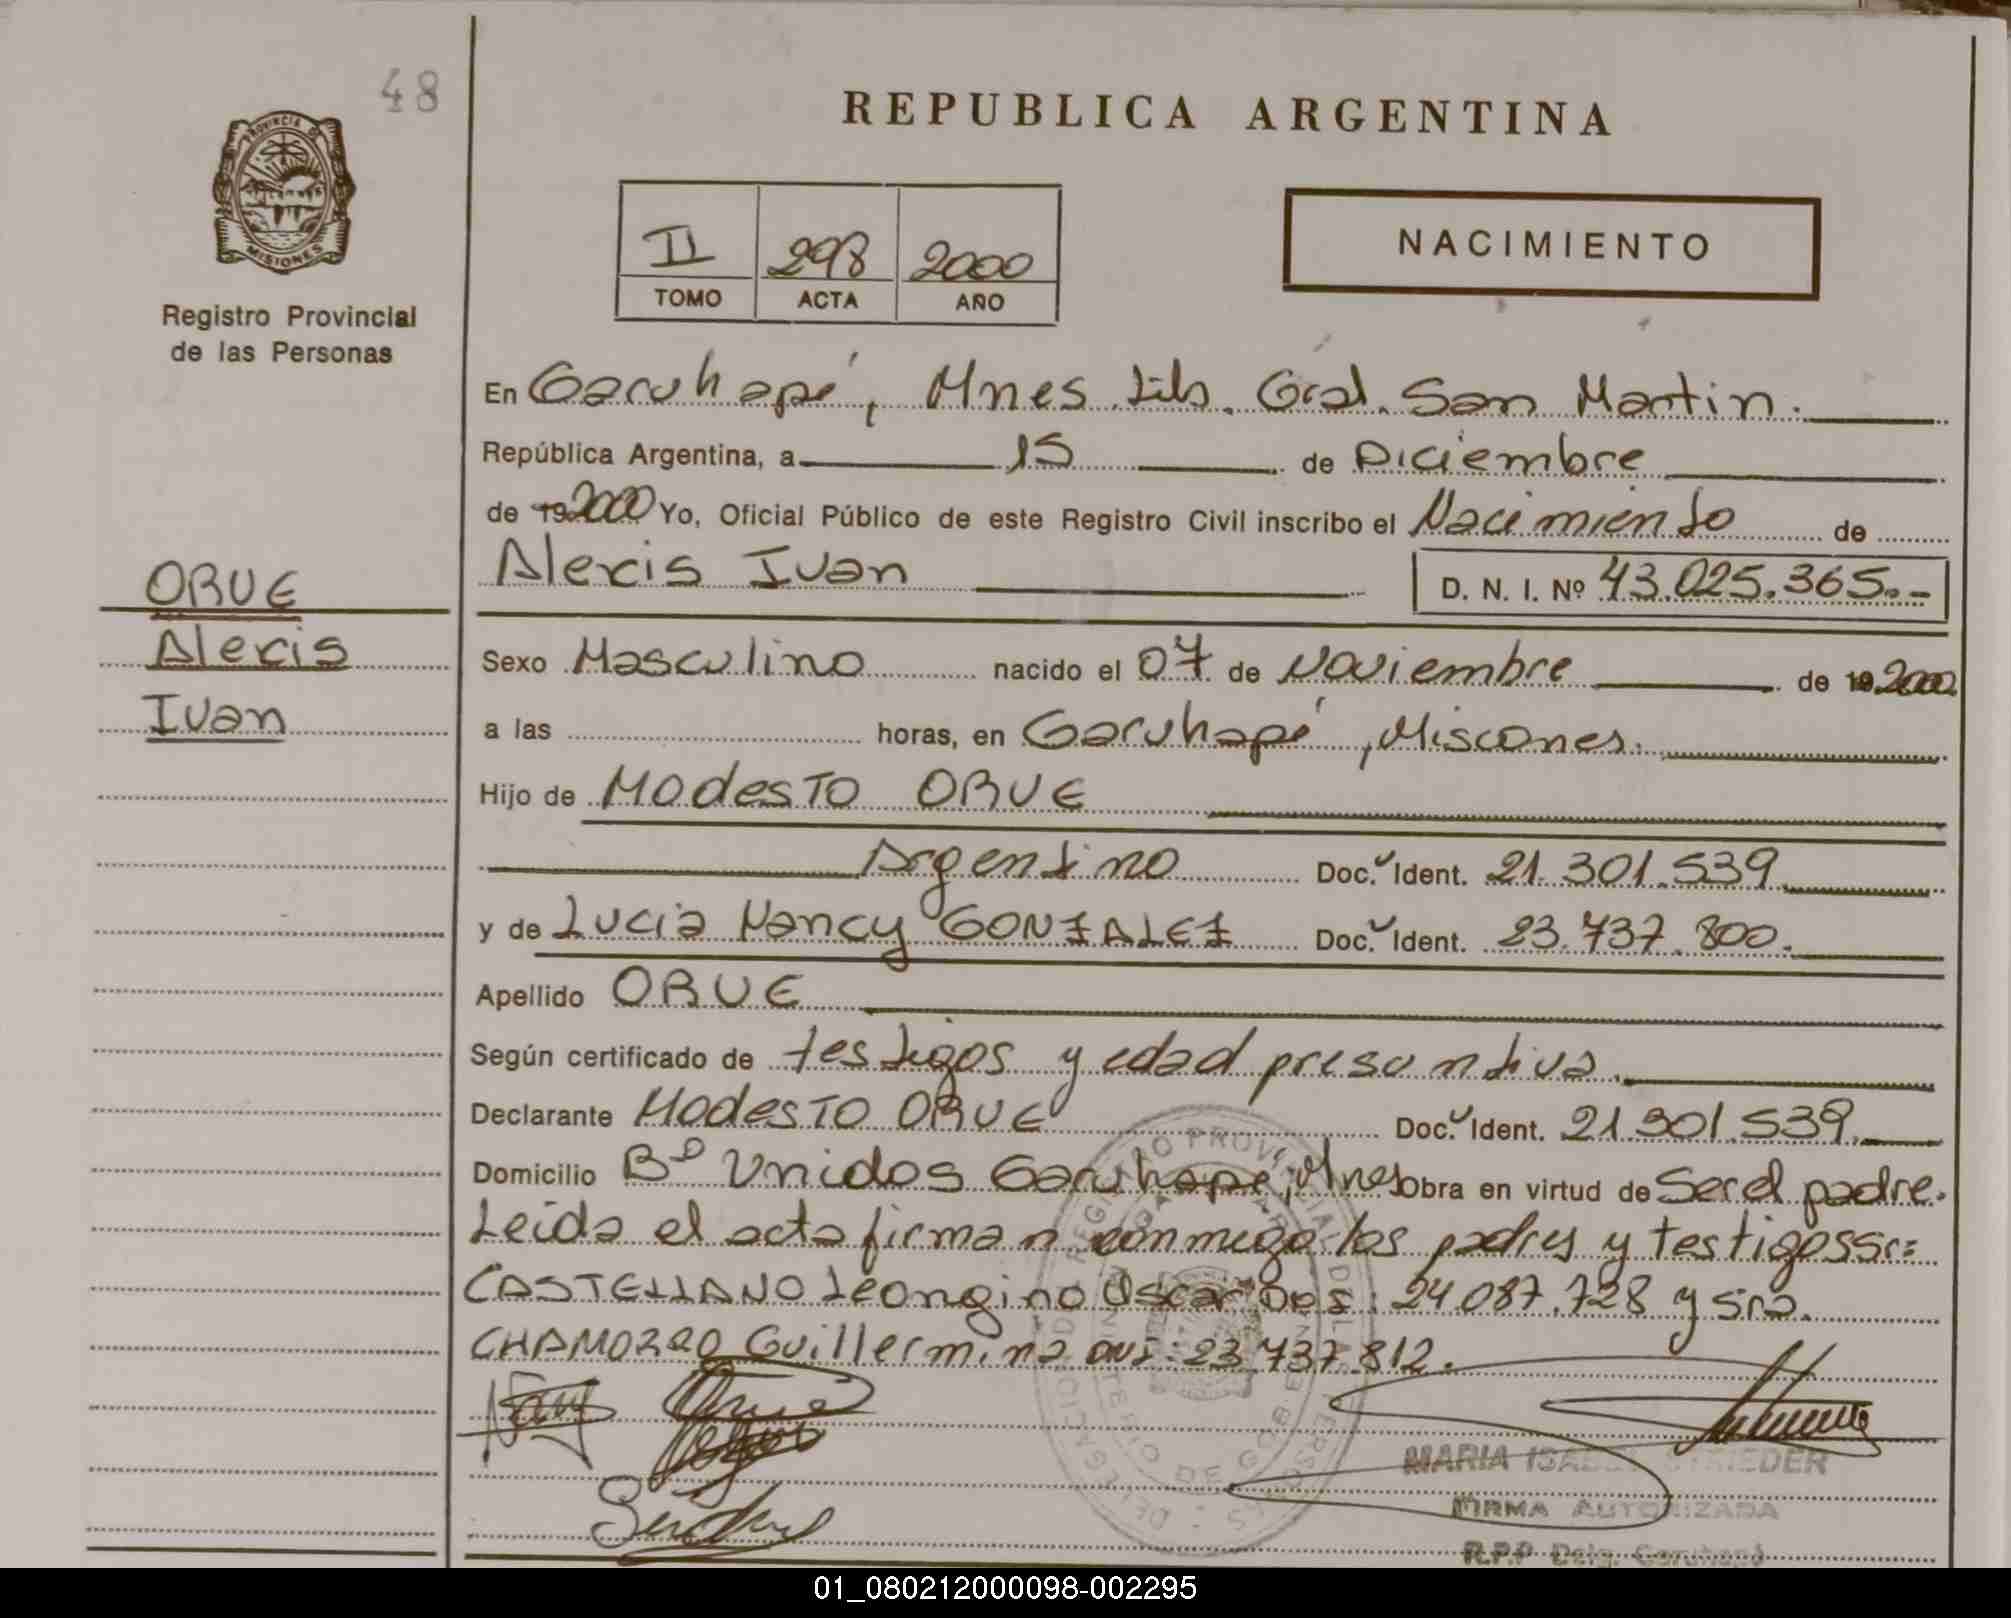 48
REPUBLICA ARGENTINA
PROVINCIA D
MISIONES
Registro Provincial
de las Personas
II 298 2000
TOMO ACTA AÑO
NACIMIENTO
En Garuhapé, Mnes. Lib. Gral. San Martin.
República Argentina, a 15 de Diciembre
de 19 2000 Yo, Oficial Público de este Registro Civil inscribo el Nacimiento de
Alexis Ivan D. N. I. Nº 43.025.365.-
ORUE
Alexis
Ivan
Sexo Masculino nacido el 07 de Noviembre de 19 2000
a las horas, en Garuhapé, Misiones.
Hijo de Modesto ORUE
Argentino Doc. Ident. 21.301.539
y de Lucia Nancy GONZALEZ Doc. Ident. 23.737.800.
Apellido ORUE
Según certificado de testigos y edad presuntiva.
Declarante Modesto ORUE Doc. Ident. 21.301.539.
Domicilio Bº Unidos Garuhapé, Mnes Obra en virtud de Ser el padre.
Leida el acta firman conmigo los padres y testigos Sr:
CASTELLANO Leongino Oscar DNI: 24.087.728 y sra.
CHAMORRO Guillermina DNI: 23.737.812.
MARIA ISABEL STRIEDER
FIRMA AUTORIZADA
R.P.P Delg. Garuhapé
01_080212000098-002295